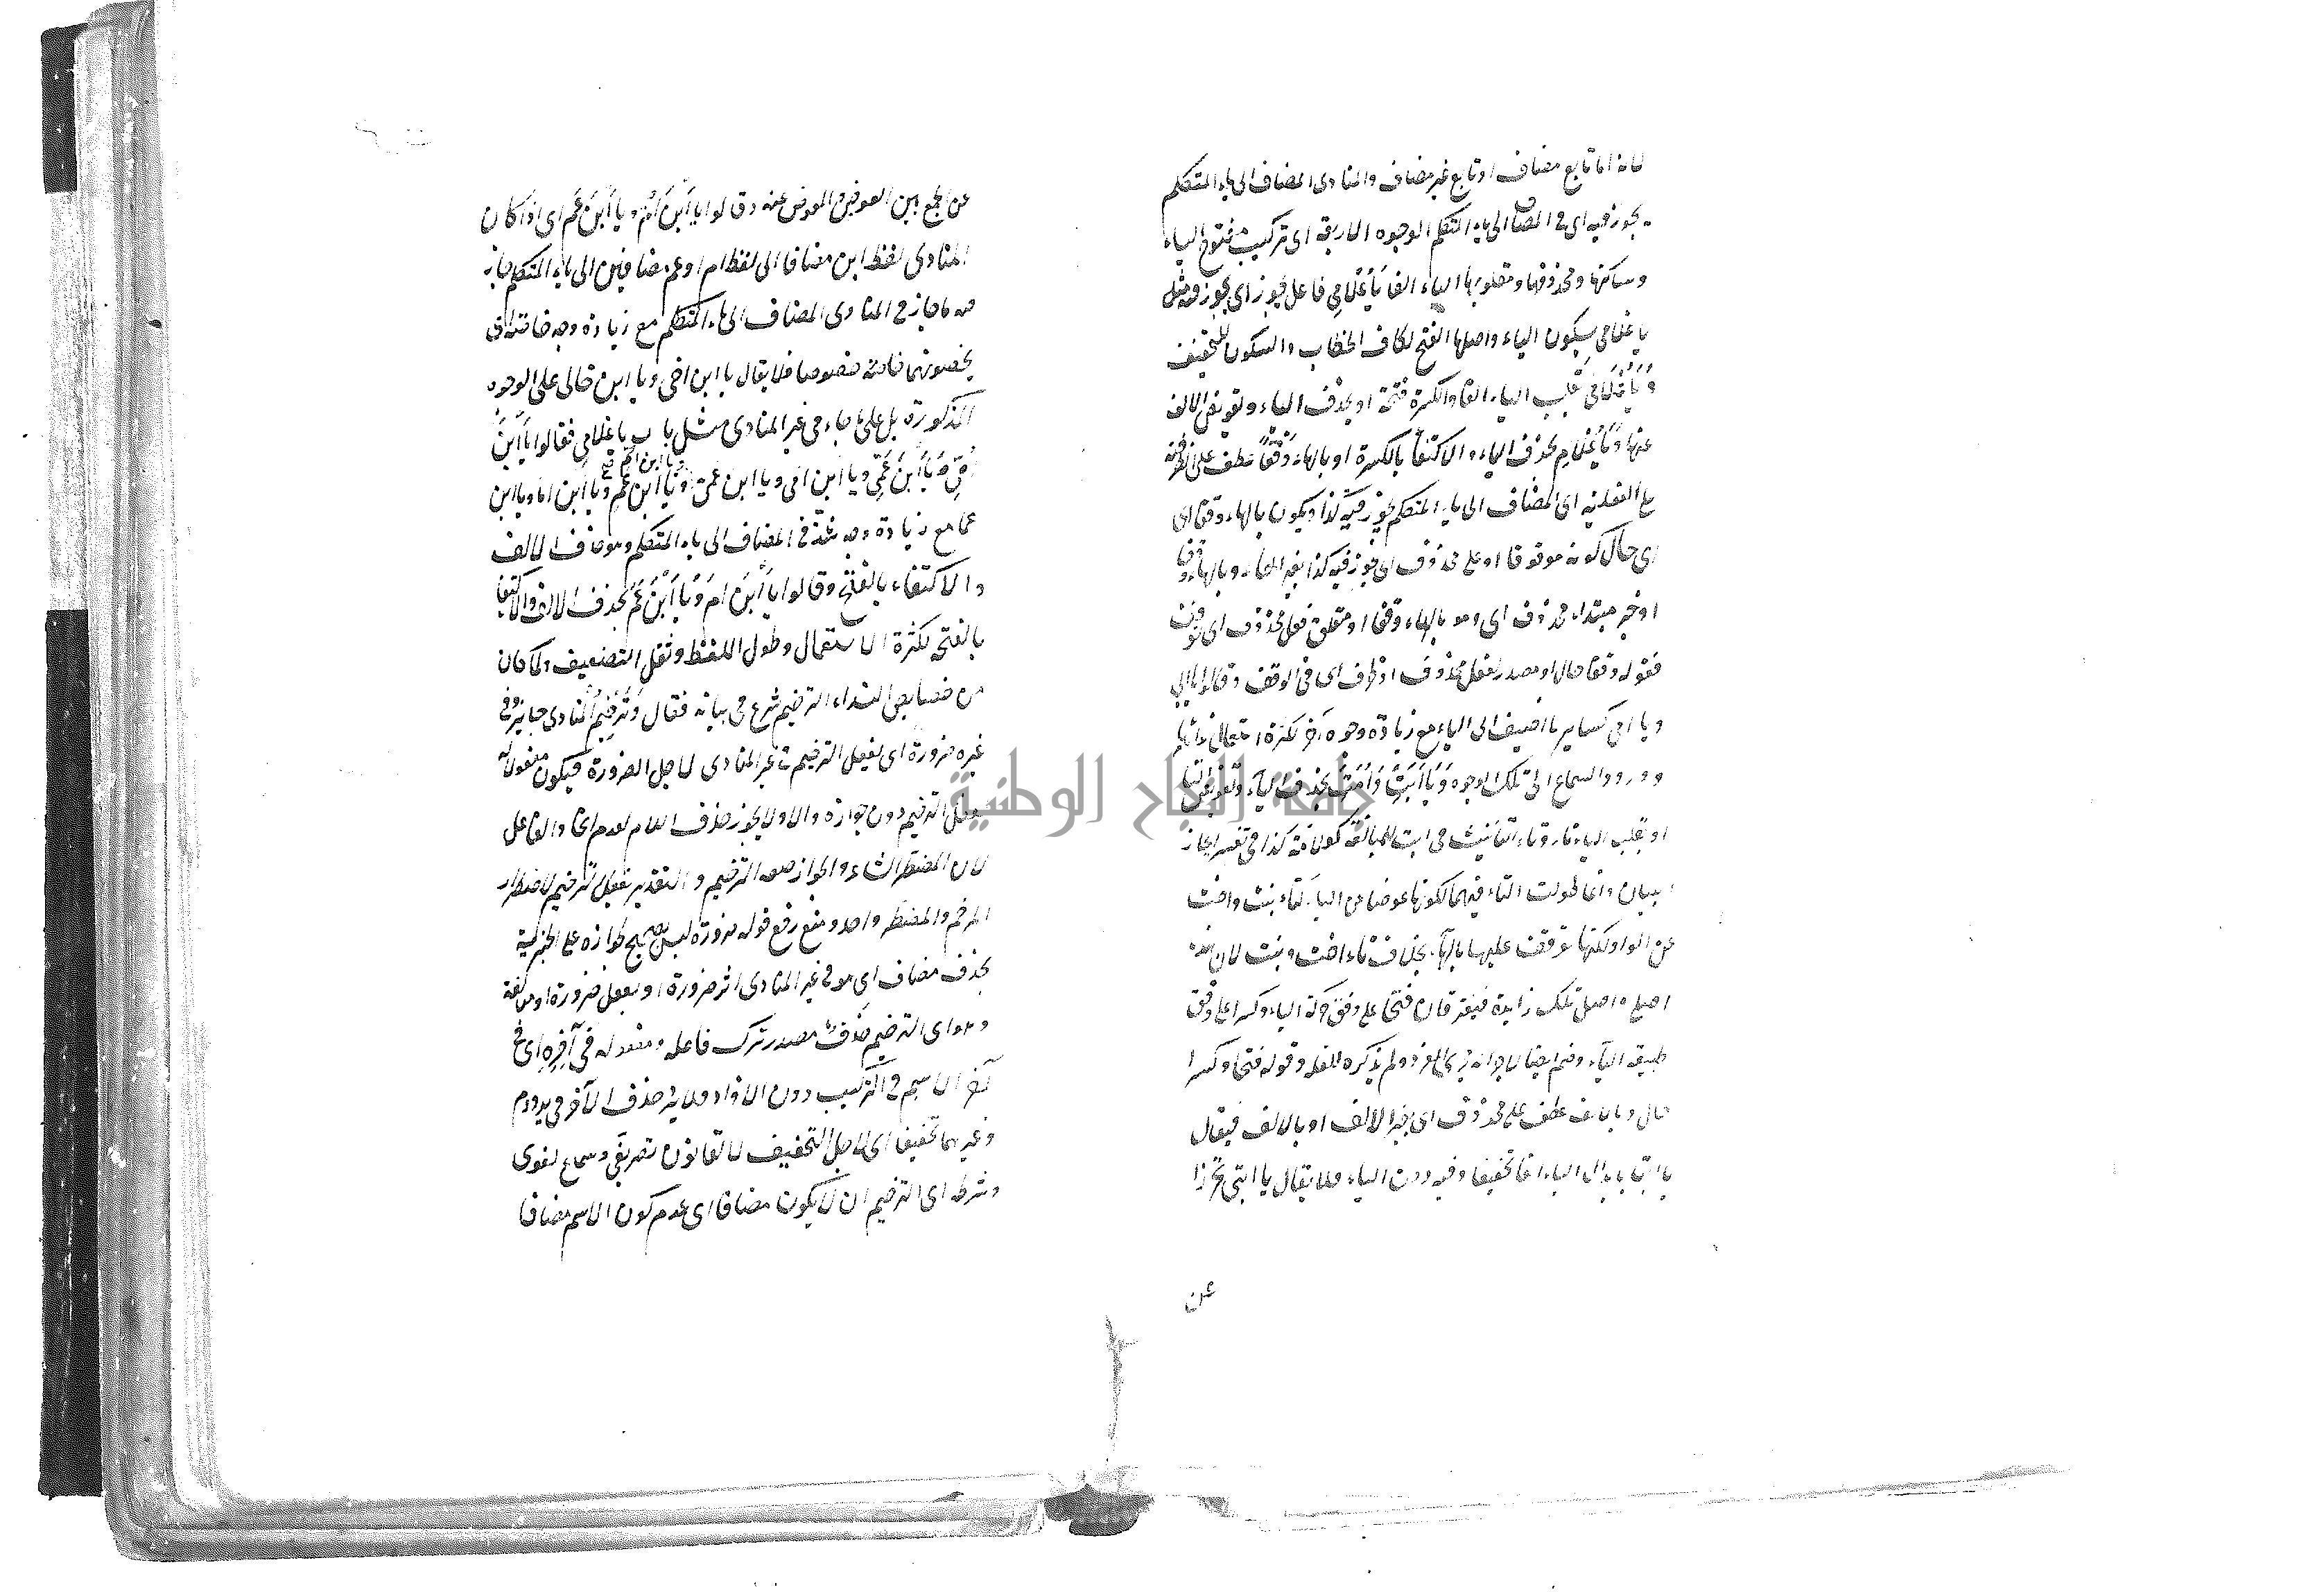 لانه اما تابع مضاف او تابع غير مضاف والمنادى المضاف الى ياء المتكلم
يجوز فيه اى فى المضاف الى ياء المتكلم الوجوه الاربعة اى تركيب مفتوح الياء
وساكنها ومحذوفها ومقلوبها الياء الفا يا غلامي فاعل يجوز اى يجوز فيه مثل
يا غلامي بسكون الياء واصلها الفتح لكاف الخطاب والسكون للتخفيف
ويا غلاما بقلب الياء الفا والكسرة فتحة او بحذف الياء وتعويض الالف
عنها ويا غلام بحذف الياء والاكتفا بالكسرة او بالهاء وقفا عطف على
الفعلية اى المضاف الى ياء المتكلم يجوز فيه كذا ويكون بالهاء وقفا اى
اى حال كونه موقوفا او على محذوف اى يجوز فيه كذا بغير الهاء وبالهاء وقفا
او خبر مبتداء محذوف اى وهو بالهاء وقفا او متعلق فعل محذوف اى توقف
فقوله وقفا حال او مصدر لفعل محذوف او ظرف اى فى الوقف وقالوا يا ابي
ويا امي كساير ما اضيف الى الياء مع زيادة وجوه اخر لكثرة استعمال
وورود السماع الى تلك الوجوه ويا ابت ويا امت بحذف الياء وتعويض التا
او بقلب الياء تاء وتاء التانيث فى ابت للمبالغة كذا فى تفسير
البيان وانما طولت التاء فيهما لكونها عوضا من الياء كتاء بنت واخت
عن الواو لكنها توقف عليها بالهاء بخلاف تاء اخت وبنت لان هذه
اصل وتلك زايدة فيفترقان فتحا على وفق حركة الياء وكسرا على وفق
الياء وضم ايضا لاجرائه مجرى المفرد ولم يذكره للقلة وقوله فتحا وكسرا
حال وبالالف عطف على محذوف اى بغير الالف او بالالف فيقال
يا ابتا بابدال الياء الفا تخفيفا وفيه دون الياء فلا يقال يا ابتى تحرزا
عن
عن الجمع بين العوض والمعوض عنه وقالوا يا ابن ام ويا ابن عم اى اذا كان
المنادى لفظ ابن مضافا الى لفظ ام او عم مضافين الى ياء المتكلم جاز
فيه ما جاز فى المنادى المضاف الى ياء المتكلم مع زيادة وجه
خاصة خصوصا فلا يقال يا ابن اخي ويا ابن خالي على الوجوه
المذكورة بل على ما جاء فى غير المنادى مثل باب يا غلامي فقالوا يا ابن
امي ويا ابن عمي ويا ابن امي ويا ابن عمي ويا ابن ام ويا ابن عم ويا ابن اما ويا ابن
عما مع زيادة وجه شذ فى المضاف الى ياء المتكلم وهو حذف الالف
والاكتفاء بالفتح وقالوا يا ابن ام ويا ابن عم بحذف الالف والاكتفا
بالفتح لكثرة الاستعمال وطول اللفظ وثقل التضعيف ولما كان
من خصايص النداء الترخيم شرع فى بيانه فقال وترخيم المنادى جايز وفى
غيره ضرورة اى يفعل الترخيم فى غير المنادى لاجل الضرورة فيكون مفعولا له
لفعل الترخيم دون جوازه والا لا يجوز حذف اللام لعدم اتحاد الفاعل
لان المضطر الشاعر والجواز صفة الترخيم والتقدير يفعل الترخيم لاضطرار
المرخم والمضطر واحد ومنع رفع قوله ضرورة ليس بصحيح لجوازه على الخبرية
بحذف مضاف اى هو فى غير المنادى اثر ضرورة او يفعل ضرورة او
وهو اى الترخيم حذف مصدر ترك فاعله ومفعوله فى آخره اى فى
آخر الاسم فى التركيب دون الافراد فلا يرد حذف الآخر فى يد ودم
وغيرهما تخفيفا اى لاجل التخفيف لا لقانون تصريفي وسماع لغوى
وشرطه اى الترخيم ان لا يكون مضافا اى عدم كون الاسم مضافا
جامعة النجاح الوطنية